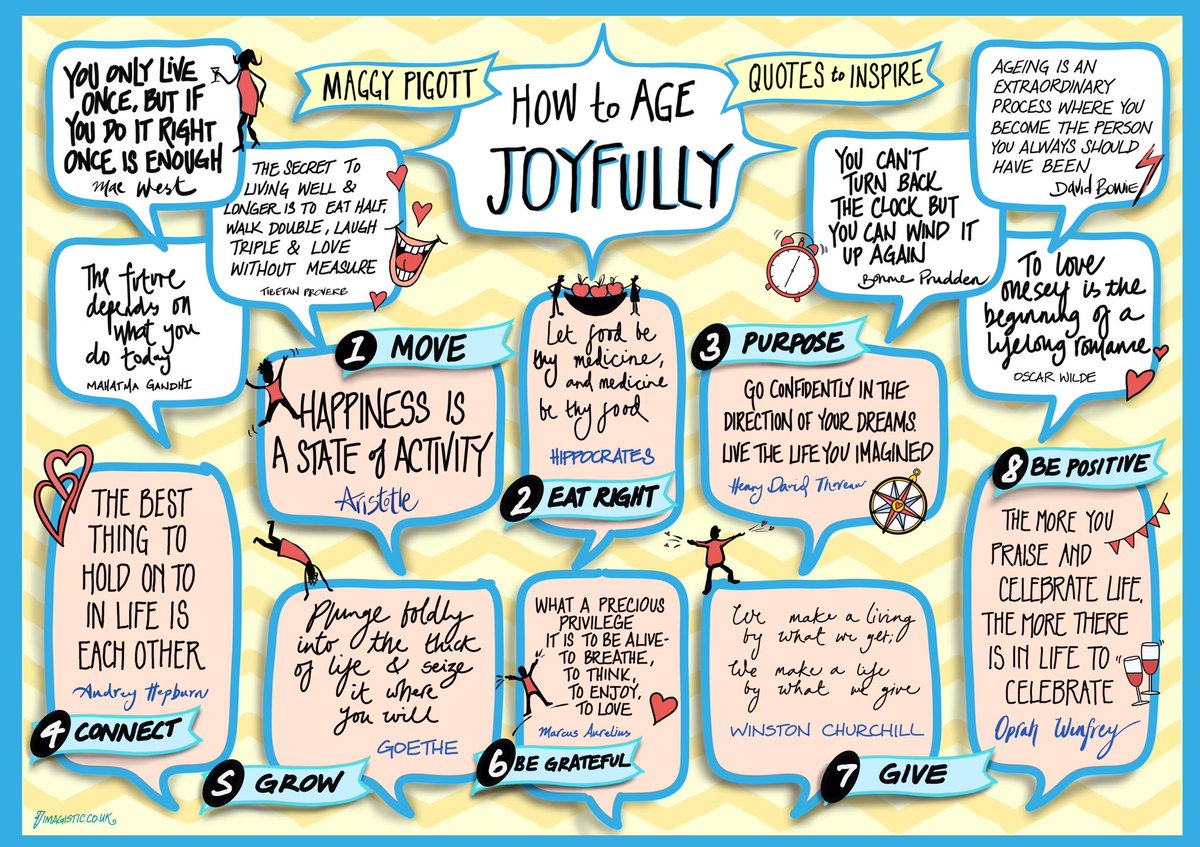 MAGGY PIGOTT
HOW to AGE
JOYFULLY
QUOTES to INSPIRE
YOU ONLY LIVE
ONCE, BUT IF
YOU DO IT RIGHT
ONCE IS ENOUGH
Mae West
THE SECRET TO
LIVING WELL &
LONGER IS TO EAT HALF,
WALK DOUBLE, LAUGH
TRIPLE & LOVE
WITHOUT MEASURE
TIBETAN PROVERB
The future
depends on
what you
do today
MAHATMA GANDHI
YOU CAN'T
TURN BACK
THE CLOCK BUT
YOU CAN WIND IT
UP AGAIN
Bonnie Prudden
AGEING IS AN
EXTRAORDINARY
PROCESS WHERE YOU
BECOME THE PERSON
YOU ALWAYS SHOULD
HAVE BEEN
David Bowie
To love
onesey is the
beginning of a
lifelong romance
OSCAR WILDE
1 MOVE
HAPPINESS IS
A STATE of ACTIVITY
Aristotle
Let food be
thy medicine,
and medicine
be thy food
HIPPOCRATES
2 EAT RIGHT
3 PURPOSE
GO CONFIDENTLY IN THE
DIRECTION OF YOUR DREAMS.
LIVE THE LIFE YOU IMAGINED
Henry David Thoreau
THE BEST
THING TO
HOLD ON TO
IN LIFE IS
EACH OTHER
Audrey Hepburn
4 CONNECT
Plunge boldly
into the thick
of life & seize
it where
you will
GOETHE
5 GROW
WHAT A PRECIOUS
PRIVILEGE
IT IS TO BE ALIVE-
TO BREATHE,
TO THINK,
TO ENJOY,
TO LOVE
Marcus Aurelius
6 BE GRATEFUL
We make a living
by what we get;
We make a life
by what we give
WINSTON CHURCHILL
7 GIVE
8 BE POSITIVE
THE MORE YOU
PRAISE AND
CELEBRATE LIFE,
THE MORE THERE
IS IN LIFE TO
CELEBRATE
Oprah Winfrey
IMAGISTIC.CO.UK